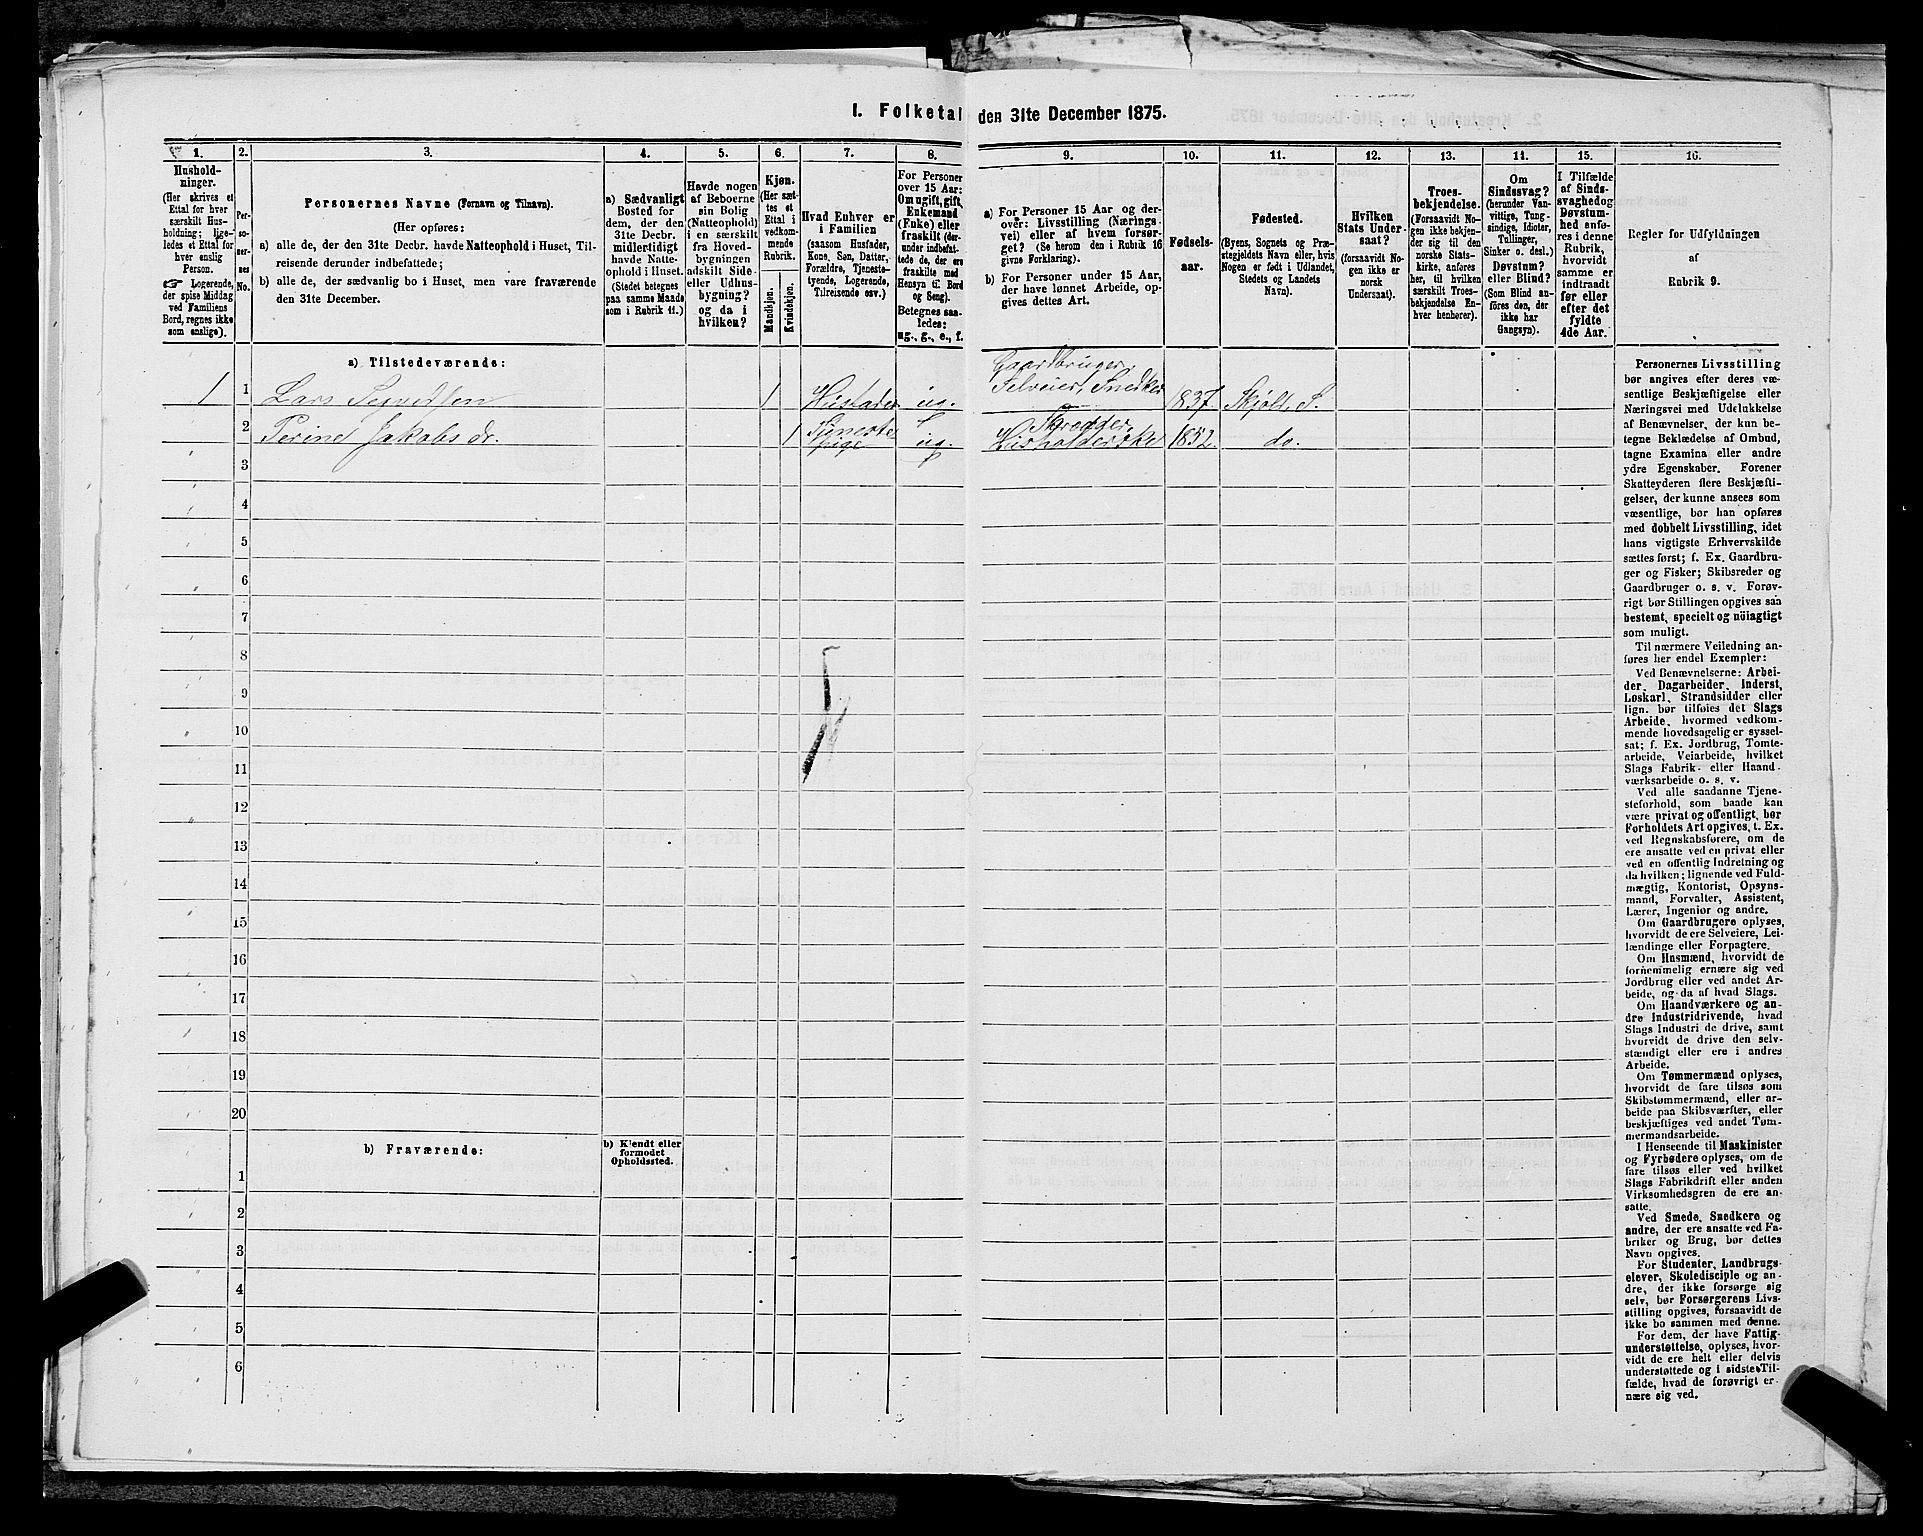 I. Folketal den 31te December 1875.
1.
Hushold-
ninger.
(Her skrives et
Ettal for hver
særskilt Hus-
holdning; lige-
ledes et Ettal for
hver enslig
Person.
☞ Logerende,
der spise Middag
ved Familiens
Bord, regnes ikke
som enslige).
2.
Per-
so-
ner-
nes
No.
3.
Personernes Navne (Fornavn og Tilnavn).
(Her opføres:
a) alle de, der den 31te Decbr. havde Natteophold i Huset, Til-
reisende derunder indbefattede;
b) alle de, der sædvanlig bo i Huset, men vare fraværende
den 31te December.
4.
a) Sædvanligt
Bosted for
dem, der den
31te Decbr.
midlertidigt
havde Natte-
ophold i Huset.
(Stedet betegnes
paa samme Maade
som i Rubrik 11.)
5.
Havde nogen
af Beboerne
sin Bolig
(Natteophold)
i en særskilt
fra Hoved-
bygningen
adskilt Side-
eller Udhus-
bygning?
og da i
hvilken?
6.
Kjøn.
(Her sæt-
tes et
Ettal i
vedkom-
mende
Rubrik.
Mandkjøn.
Kvindekjøn.
7.
Hvad Enhver er
i Familien
(saasom Husfader,
Kone, Søn, Datter,
Forældre, Tjeneste-
tyende, Logerende,
Tilreisende osv.)
8.
For Personer
over 15 Aar:
Om ugift, gift,
Enkemand
(Enke) eller
fraskilt (der-
under indbefat-
tede de, der ere
fraskilte med
Hensyn til Bord
og Seng).
Betegnes saa-
ledes:
ug., g., e., f.
9.
a) For Personer 15 Aar og der-
over: Livsstilling (Nærings-
vei) eller af hvem forsør-
get? (Se herom den i Rubrik 16
givne Forklaring).
b) For Personer under 15 Aar,
der have lønnet Arbeide, op-
gives dettes Art.
10.
Fødsels-
aar.
11.
Fødested.
(Byens, Sognets og Præ-
stegjeldets Navn eller, hvis
Nogen er født i Udlandet,
Stedets og Landets
Navn).
12.
Hvilken
Stats Under-
saat?
(forsaavidt No-
gen ikke er
norsk
Undersaat).
13.
Troes-
bekjendelse.
(Forsaavidt No-
gen ikke bekjen-
der sig til den
norske Stats-
kirke, anføres
her, til hvilken
særskilt Troes-
bekjendelse En-
hver henhører).
14.
Om
Sindssvag?
(herunder Van-
vittige, Tung-
sindige, Idioter,
Tullinger,
Sinker o. desl.)
Døvstum?
eller Blind?
(Som Blind an-
føres den, der
ikke har
Gangsyn).
15.
I Tilfælde
af Sinds-
svaghed og
Døvstum-
hed anfø-
res i denne
Rubrik,
hvorvidt
samme er
indtraadt
før eller
efter det
fyldte
4de Aar.
16.
Regler for Udfyldningen
af
Rubrik 9.
a) Tilstedeværende:
1 1 Lars Segvedsen 1 Husfader ug. Gaardbruger,
Selveier, Snedker 1837. Skjold, S.
2 Perine Jakobs dr. 1 Tjeneste
pige ug. Skrædder,
Husholderske 1852. do.
3
4
5
6
7
8
9
10
11
12
13
14
15
16
17
18
19
20
b) Fraværende:
b) Kjendt eller
formodet
Opholdssted.
1
2
3
4
5
6
Personernes Livsstilling
bør angives efter deres væ-
sentlige Beskjæftigelse eller
Næringsvei med Udelukkelse
af Benævnelser, der kun be-
tegne Beklædelse af Ombud,
tagne Examina eller andre
ydre Egenskaber. Forener
Skatteyderen flere Beskjæfti-
gelser, der kunne ansees som
væsentlige, bør han opføres
med dobbelt Livsstilling, idet
hans vigtigste Erhvervskilde
sættes først; f. Ex. Gaardbru-
ger og Fisker; Skibsreder og
Gaardbruger o. s. v. Forøv-
rigt bør Stillingen opgives saa
bestemt, specielt og nöiagtigt
som muligt.
Til nærmere Veiledning an-
føres her endel Exempler:
Ved Benævnelserne: Arbei-
der, Dagarbeider, Inderst,
Løskarl, Strandsidder eller
lign. bør tilføies det Slags
Arbeide, hvormed vedkom-
mende hovedsagelig er syssel-
sat; f. Ex. Jordbrug, Tomte-
arbeide, Veiarbeide, hvilket
Slags Fabrik- eller Haand-
værksarbeide o. s. v.
Ved alle saadanne Tjene-
steforhold, som baade kan
være privat og offentligt, bør
Forholdets Art opgives, t. Ex.
ved Regnskabsførere, om de
ere ansatte ved en privat eller
ved en offentlig Indretning og
da hvilken; lignende ved Fuld-
mægtig, Kontorist, Opsyns-
mand, Forvalter, Assistent,
Lærer, Ingeniør og andre.
Om Gaardbrugere oplyses,
hvorvidt de ere Selveiere, Lei-
lændinge eller Forpagtere.
Om Husmænd, hvorvidt de
fornemmelig ernære sig ved
Jordbrug eller ved andet Ar-
beide, og da af hvad Slags.
Om Haandværkere og an-
dre Industridrivende, hvad
Slags Industri de drive, samt
hvorvidt de drive den selv-
stændigt eller ere i andres
Arbeide.
Om Tømmermænd oplyses,
hvorvidt de fare tilsøs som
Skibstømmermænd, eller ar-
beide paa Skibsværfter, eller
beskjæftiges ved andet Tøm-
mermandsarbeide.
I Henseende til Maskinister
og Fyrbødere oplyses, om de
fare tilsøs eller ved hvilket
Slags Fabrikdrift eller anden
Virksomhedsgren de ere an-
satte.
Ved Smede, Snedkere og
andre, der ere ansatte ved Fa-
briker og Brug, bør dettes
Navn opgives.
For Studenter, Landbrugs-
elever, Skoledisciple og an-
dre, der ikke forsørge sig
selv, bør Forsørgerens Livs-
stilling opgives, forsaavidt de
ikke bo sammen med denne.
For dem, der have Fattig-
understøttelse, oplyses, hvor-
vidt de ere helt eller delvis
understøttede og i sidste Til-
fælde, hvad de forøvrigt er-
nære sig ved.